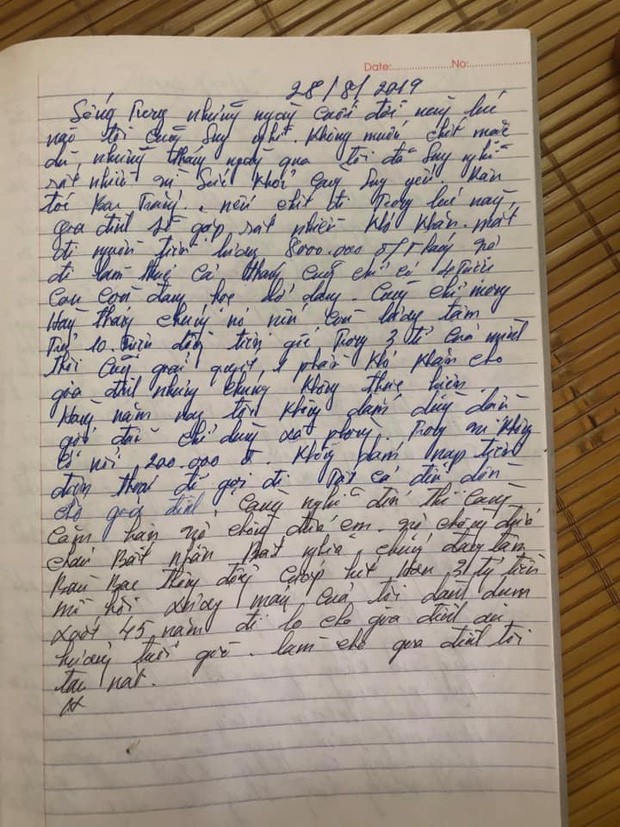 Date: No:
28/8/2019
Sống Trong những ngày cuối đời này lúc
ngõ tối cũng suy nghĩ. Không muốn chết mặc
dù, những tháng ngày qua tôi đã suy nghĩ
rất nhiều vì, sức khỏe cũng suy yếu
tôi. nếu chết đi Trong lúc này
gia đình sẽ gặp rất nhiều khó khăn. mất
đi nguồn tiền lương 8000.000 đ/Tháng
đi làm thuê cả tháng cũng chỉ có 4 Triệu
Con còn đang học dở dang. Cũng chỉ mong
Hàng tháng chúng nó lương tâm
Trả 10. Triệu đồng tiền gốc Trong 3 tỉ của mình
Thôi cũng giải quyết 1 phần khó khăn cho
gia đình nhưng chúng không thực hiện.
Hàng năm nay tôi không dám dùng dầu
gội đầu chỉ dùng xà phòng. Trong khi không
có nổi 200.000 đ không dám nạp tiền
điện thoại để gọi đi Tất cả để dồn
cho gia đình. Càng nghĩ đến thì càng
căm hận vợ chồng đứa em. vợ chồng đứa
cháu Bất nhân Bất nghĩa, chúng đang tâm
Bàn Bạc Thông đồng cướp hết Hơn 3 tỷ tiền
mồ hôi xương máu của tôi dành dụm
suốt 45 năm để lo cho gia đình
hưởng tuổi già. làm cho gia đình tôi
tan nát.